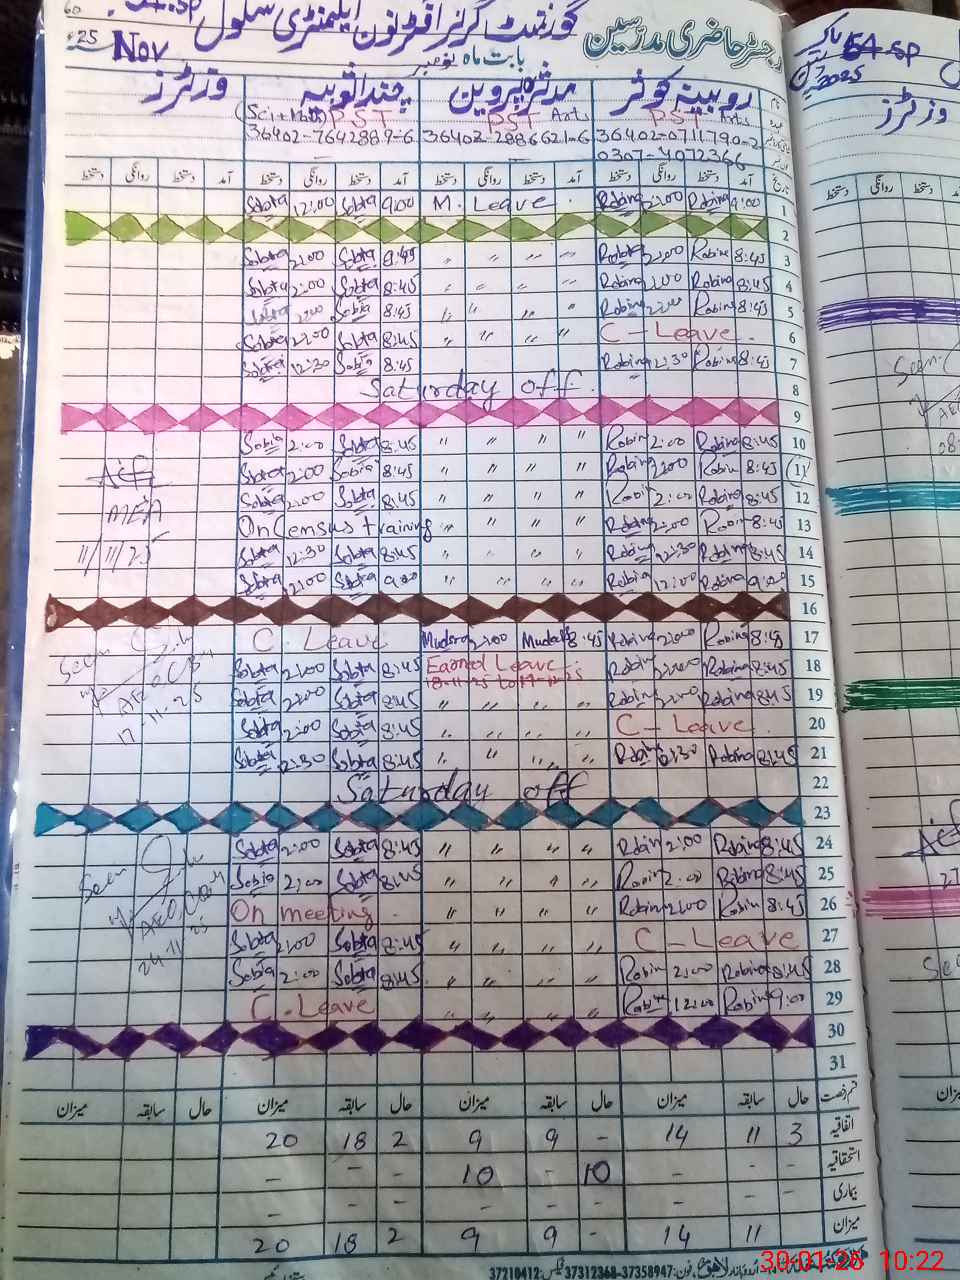 60
54.SP
گورنمنٹ گرلز افٹرنون ایلیمنٹری سکول
رجسٹر حاضری مدرسین
25
Nov
بابت ماہ نومبر
روبینہ کوثر
مدثرہ پروین
وزٹرز
PST Arts
PST Arts
(Sci+Math) PST
36402-0711790-2
36402-2886621-6
36402-7642889-6
0307-4972366
تاریخ آمد دستخط روانگی دستخط آمد دستخط روانگی دستخط آمد دستخط روانگی دستخط آمد دستخط روانگی دستخط
1 9:00 Robina 2:00 Robina M. Leave 9:00 Sobia 12:00 Sobia
2
3 8:45 Robina 2:00 Robina " " " " 8:45 Sobia 2:00 Sobia
4 8:45 Robina 2:00 Robina " " " " 8:45 Sobia 2:00 Sobia
5 8:45 Robina 2:00 Robina " " " 8:45 Sobia 2:00 Sobia
6 C - Leave " " " " 8:45 Sobia 2:00 Sobia
7 8:45 Robina 12:30 Robina 8:45 Sobia 12:30 Sobia
8 Saturday off
9
10 8:45 Robina 2:00 Robina " " " " 8:45 Sobia 2:00 Sobia
11 8:45 Robina 2:00 Robina " " " " 8:45 Sobia 2:00 Sobia
12 8:45 Robina 2:00 Robina " " " " 8:45 Sobia 2:00 Sobia
MEA
13 8:45 Robina 2:00 Robina " " " " On Census training
14 8:45 Robina 12:30 Robina " " " " 8:45 Sobia 12:30 Sobia
11/11/25
15 9:00 Robina 12:00 Robina " " " " 9:00 Sobia 12:00 Sobia
16
17 8:45 Robina 2:00 Robina 8:45 Mudsra 2:00 Mudsra C. Leave
Seen
18 8:45 Robina 2:00 Robina Earned Leave 8:45 Sobia 2:00 Sobia
19 8:45 Robina 2:00 Robina " " " " 8:45 Sobia 2:00 Sobia
17-11-25
20 C - Leave " " " " 8:45 Sobia 2:00 Sobia
21 8:45 Robina 12:30 Robina " " " " 8:45 Sobia 12:30 Sobia
22 Saturday off
23
24 8:45 Robina 2:00 Robina " " " " 8:45 Sobia 2:00 Sobia
Seen
25 8:45 Robina 2:00 Robina " " " " 8:45 Sobia 2:00 Sobia
26 8:45 Robina 2:00 Robina " " " " On meeting
27 C - Leave " " " " 8:45 Sobia 2:00 Sobia
24-11-25
28 8:45 Robina 2:00 Robina " " " " 8:45 Sobia 2:00 Sobia
29 9:00 Robina 12:00 Robina " " " " C. Leave
30
31
قسم رخصت حال سابقہ میزان حال سابقہ میزان حال سابقہ میزان حال سابقہ میزان
اتفاقیہ 3 11 14 - 9 9 2 18 20
استحقاقیہ - - - 10 - 10 - - -
بیماری - - - - - - - - -
میزان 11 14 - 9 9 2 18 20
37358947-37312368 فیکس: 37210412
54 SP
2025
وزٹرز
آمد دستخط روانگی دستخط
Seen
30-01-26 10:22